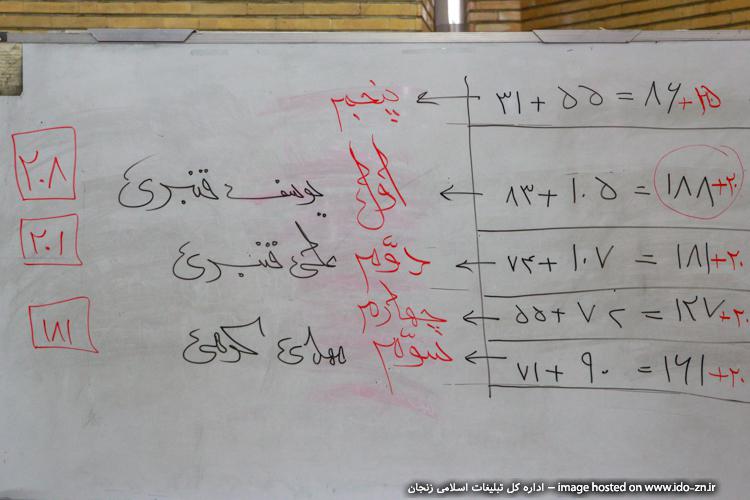 پنجم ← ۳۱ + ۵۵ = ۸۶ + ۲۵
۲۰۸ یوسف قنبری اول ← ۸۳ + ۱۰۵ = ۱۸۸ + ۲۰
۲۰۱ علی قنبری دوّم ← ۷۴ + ۱۰۷ = ۱۸۱ + ۲۰
چهارم ← ۵۵ + ۷۲ = ۱۲۷ + ۲۰
۱۸۱ مهدی کرمی سوّم ← ۷۱ + ۹۰ = ۱۶۱ + ۲۰
اداره کل تبلیغات اسلامی زنجان – image hosted on www.ido-zn.ir